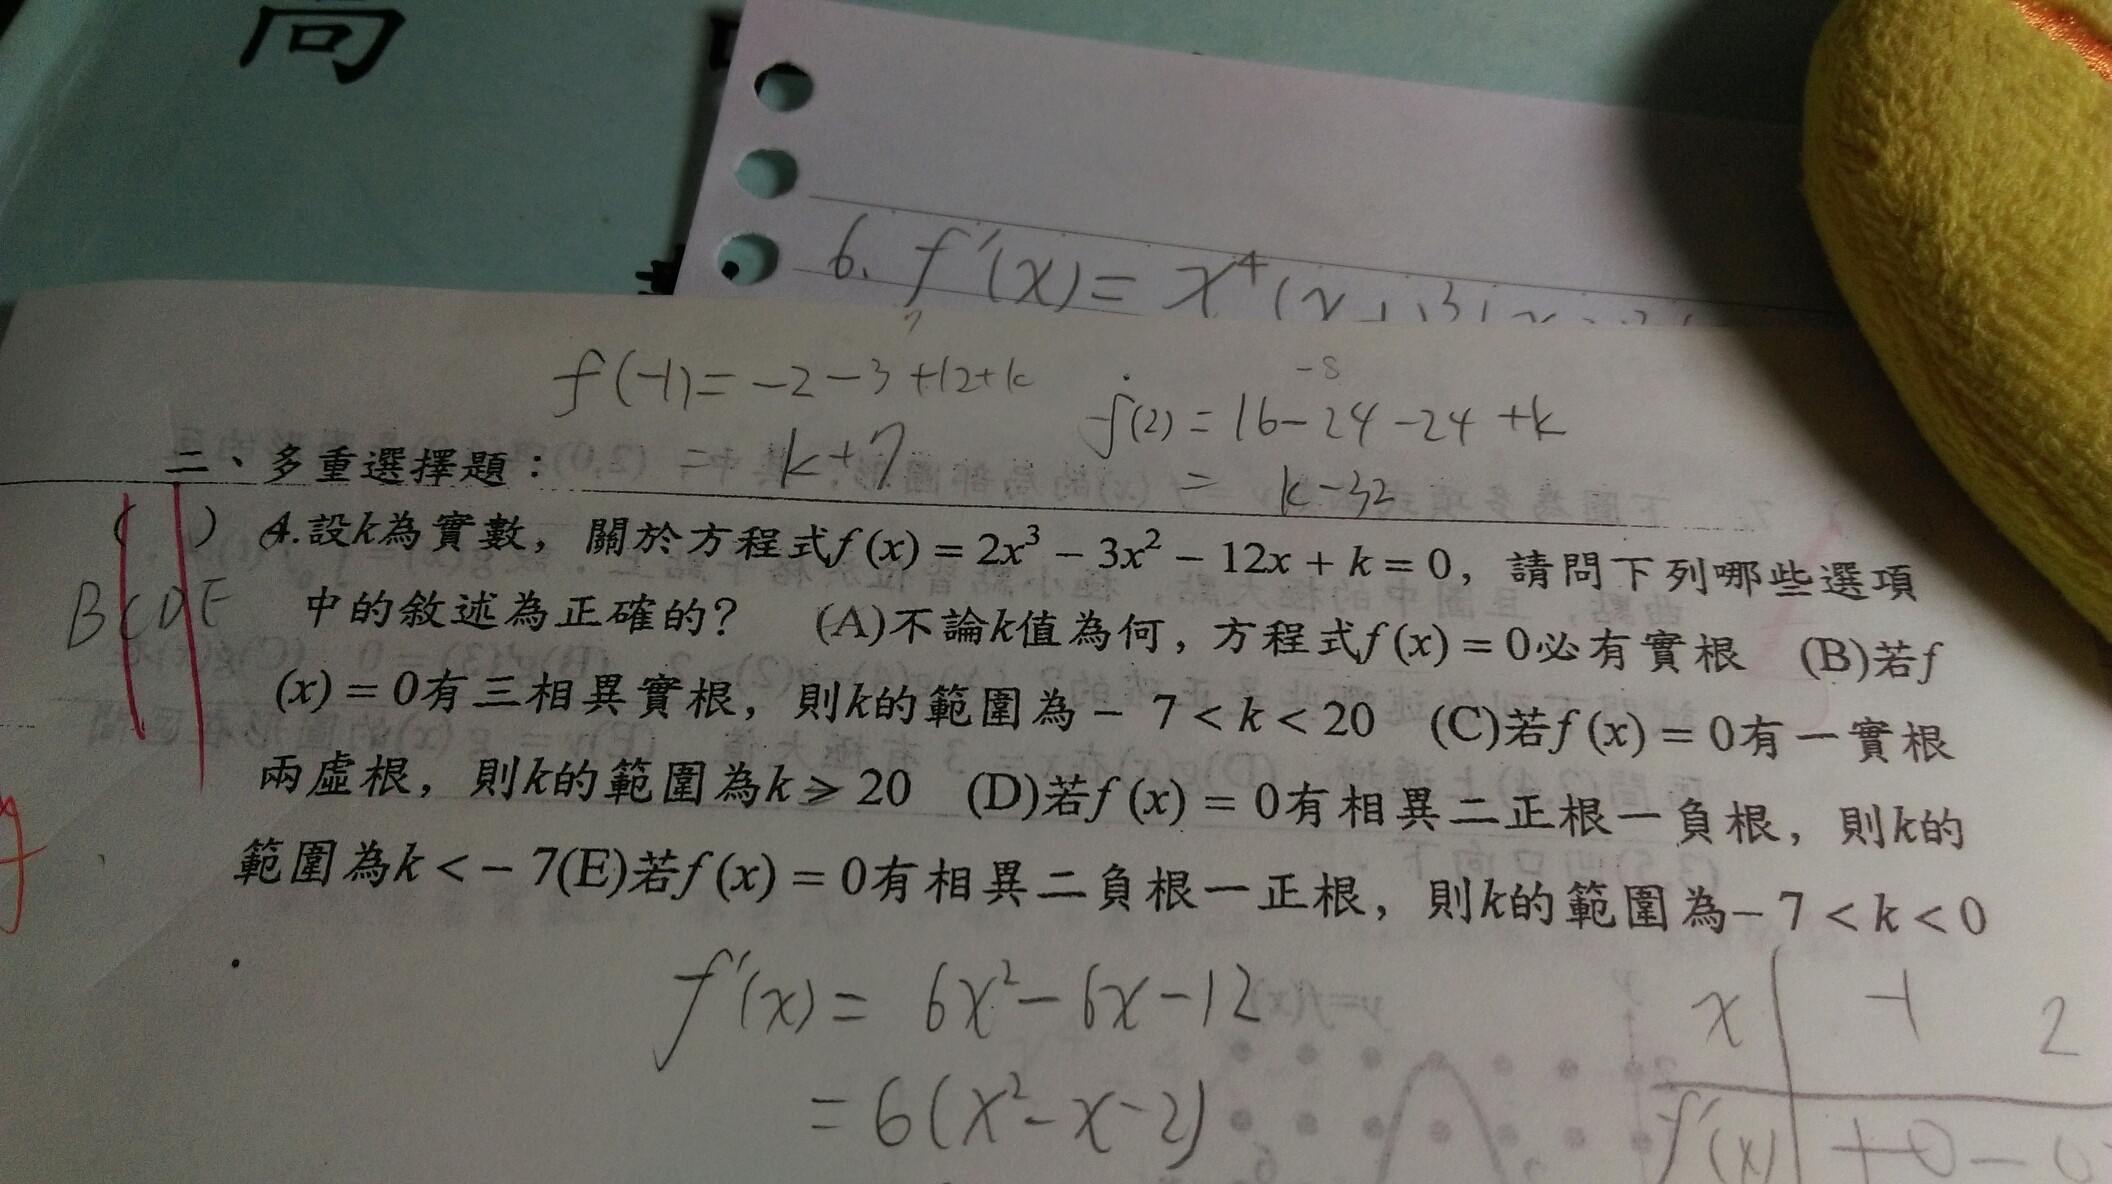 高
6. f'(x) = x⁴(x
f(-1) = -2-3+12+k
= k+7
-8
f(2) = 16-24-24+k
= k-32
二、多重選擇題：
( ) 4.設k為實數，關於方程式f(x) = 2x³ − 3x² − 12x + k = 0，請問下列哪些選項
BCDE 中的敘述為正確的？ (A)不論k值為何，方程式f(x) = 0必有實根 (B)若f
(x) = 0有三相異實根，則k的範圍為 − 7 < k < 20 (C)若f(x) = 0有一實根
兩虛根，則k的範圍為k ⩾ 20 (D)若f(x) = 0有相異二正根一負根，則k的
範圍為k < − 7(E)若f(x) = 0有相異二負根一正根，則k的範圍為− 7 < k < 0
f'(x) = 6x²-6x-12
= 6(x²-x-2)
x -1 2
f'(x) + 0 - 0